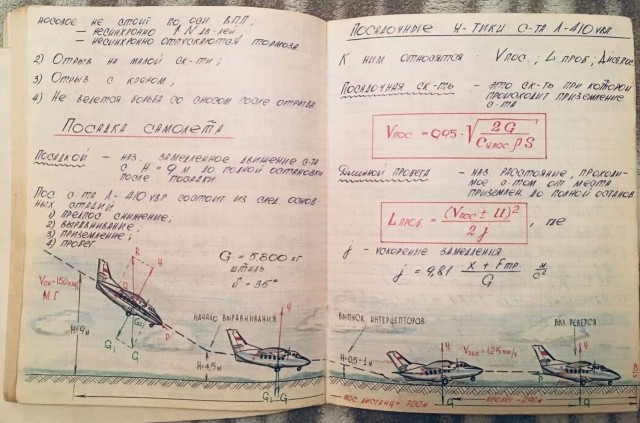 носовое не стоит по оси ВПП;
— несинхронно ↑ N дв-лей
— несинхронно отпускаются тормоза.
2) Отрыв на малой ск-ти;
3) Отрыв с креном;
4) Не ведется борьба со сносом после отрыва.
Посадка самолета
Посадкой - наз. замедленное движение с-та
с H = 9 м до полной остановки
после посадки.
Пос. с-та Л-410 УВП состоит из след. основ-
ных стадий:
1) предпос. снижение;
2) выравнивание;
3) приземление;
4) пробег.
G = 5.800 кг
штиль
δ = 35°
М.Г.
H=9м
G₁
G
начало выравнивания
H=4,5м
G
Посадочные х-тики с-та Л-410 УВП
К ним относятся Vпос.; L проб.;
Посадочная ск-ть - это ск-ть при которой
происходит приземление
с-та
Vпос = 0,95 · √ 2G / Cyпос ρ S
Длинной пробега - наз. расстояние, проходи-
мое с-том от места
приземлен. до полной останов.
Lпроб. = (Vпос ± U)² / 2j , где
j - ускорение замедления
j = 9,81 X + Fтр / G м/с²
выпуск интерцепторов
H=0,5-1м
Vпос=125км/ч
вкл реверса
G
G